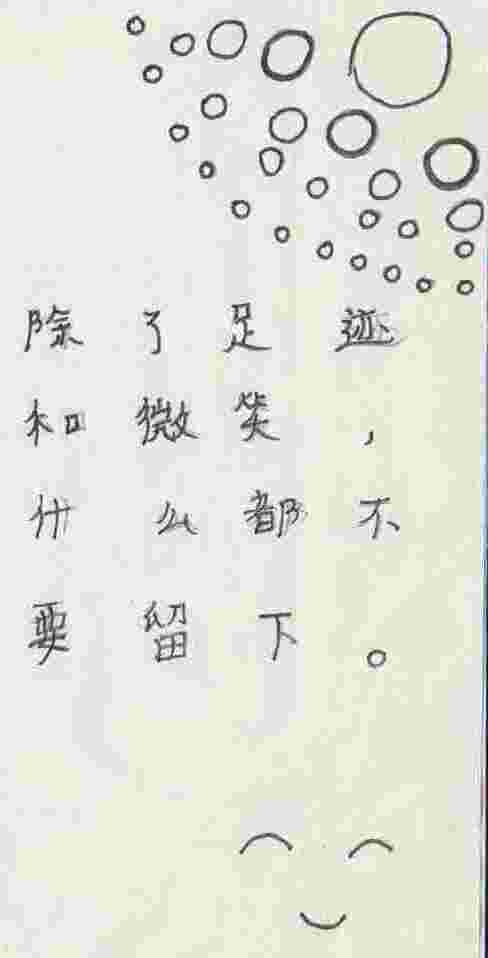 除了足迹
和微笑，
什么都不
要留下。